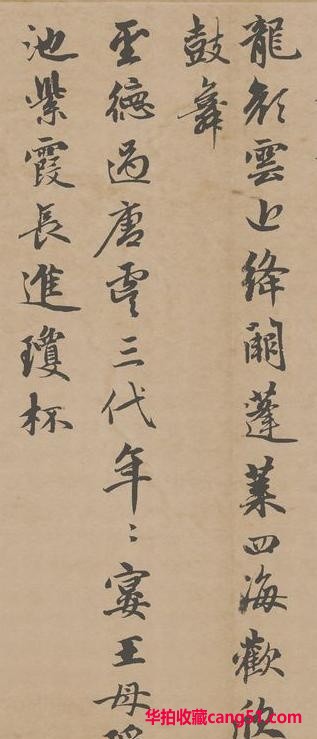 龍雲絳闕蓬萊四海歡欣
鼓舞
聖德過唐虞三代年〻宴王母
池紫霞長進瓊杯
华拍收藏cang51.com